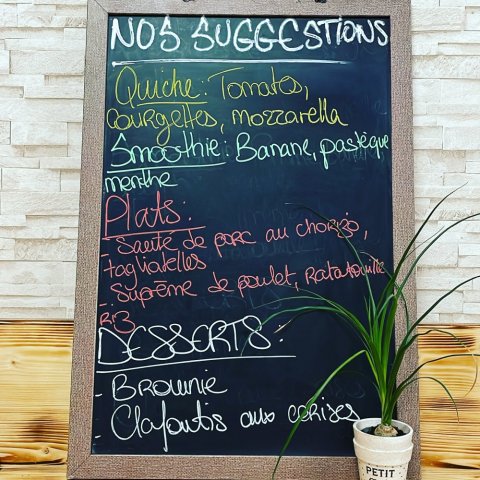 NOS SUGGESTIONS
Quiche: Tomates,
courgettes, mozzarella
Smoothie: Banane, pastèque
menthe
Plats:
- Sauté de porc au chorizo,
tagliatelles
- Suprême de poulet, Ratatouille
Riz
DESSERTS:
- BROWNIE
- Clafoutis aux cerises
PETIT